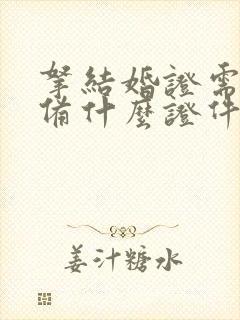 拏結婚證需
備什麼證件
姜汁糖水